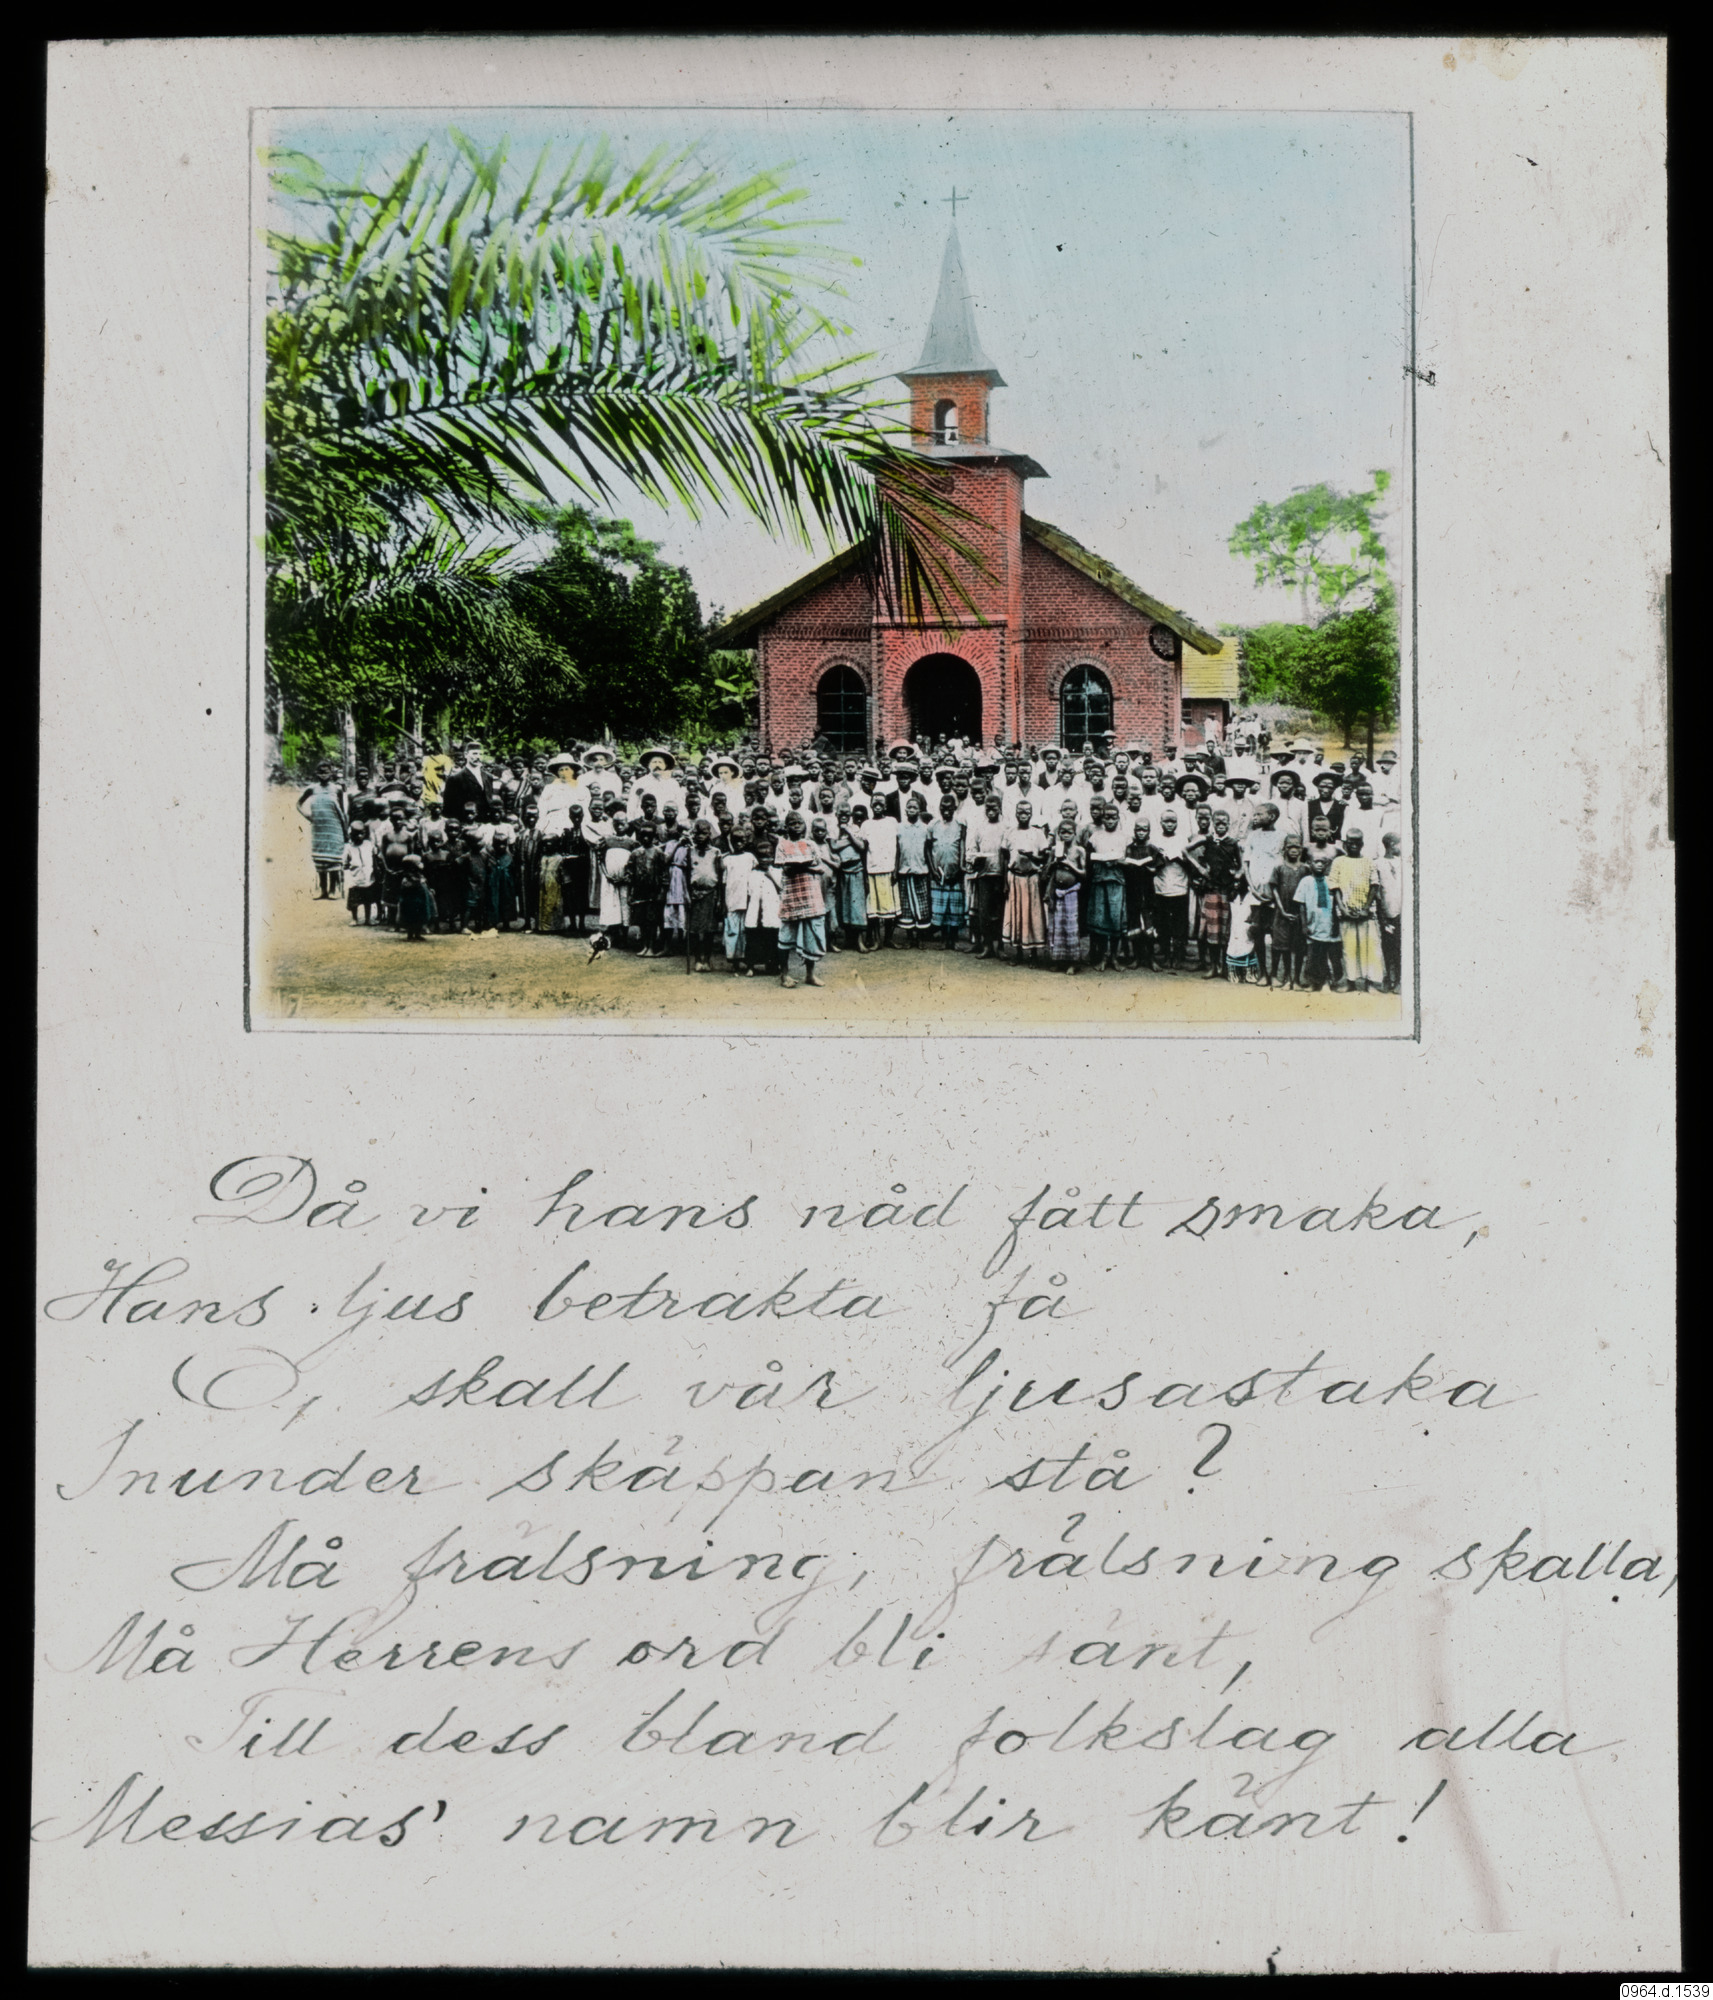 Då vi hans nåd fått smaka,
Hans ljus betrakta få
O, skall vår ljusastaka
Inunder skäppan stå?
Må frälsning, frälsning skalla,
Må Herrens ord bli sänt,
Till dess bland folkslag alla
Messias' namn blir känt!
0964.d.1539